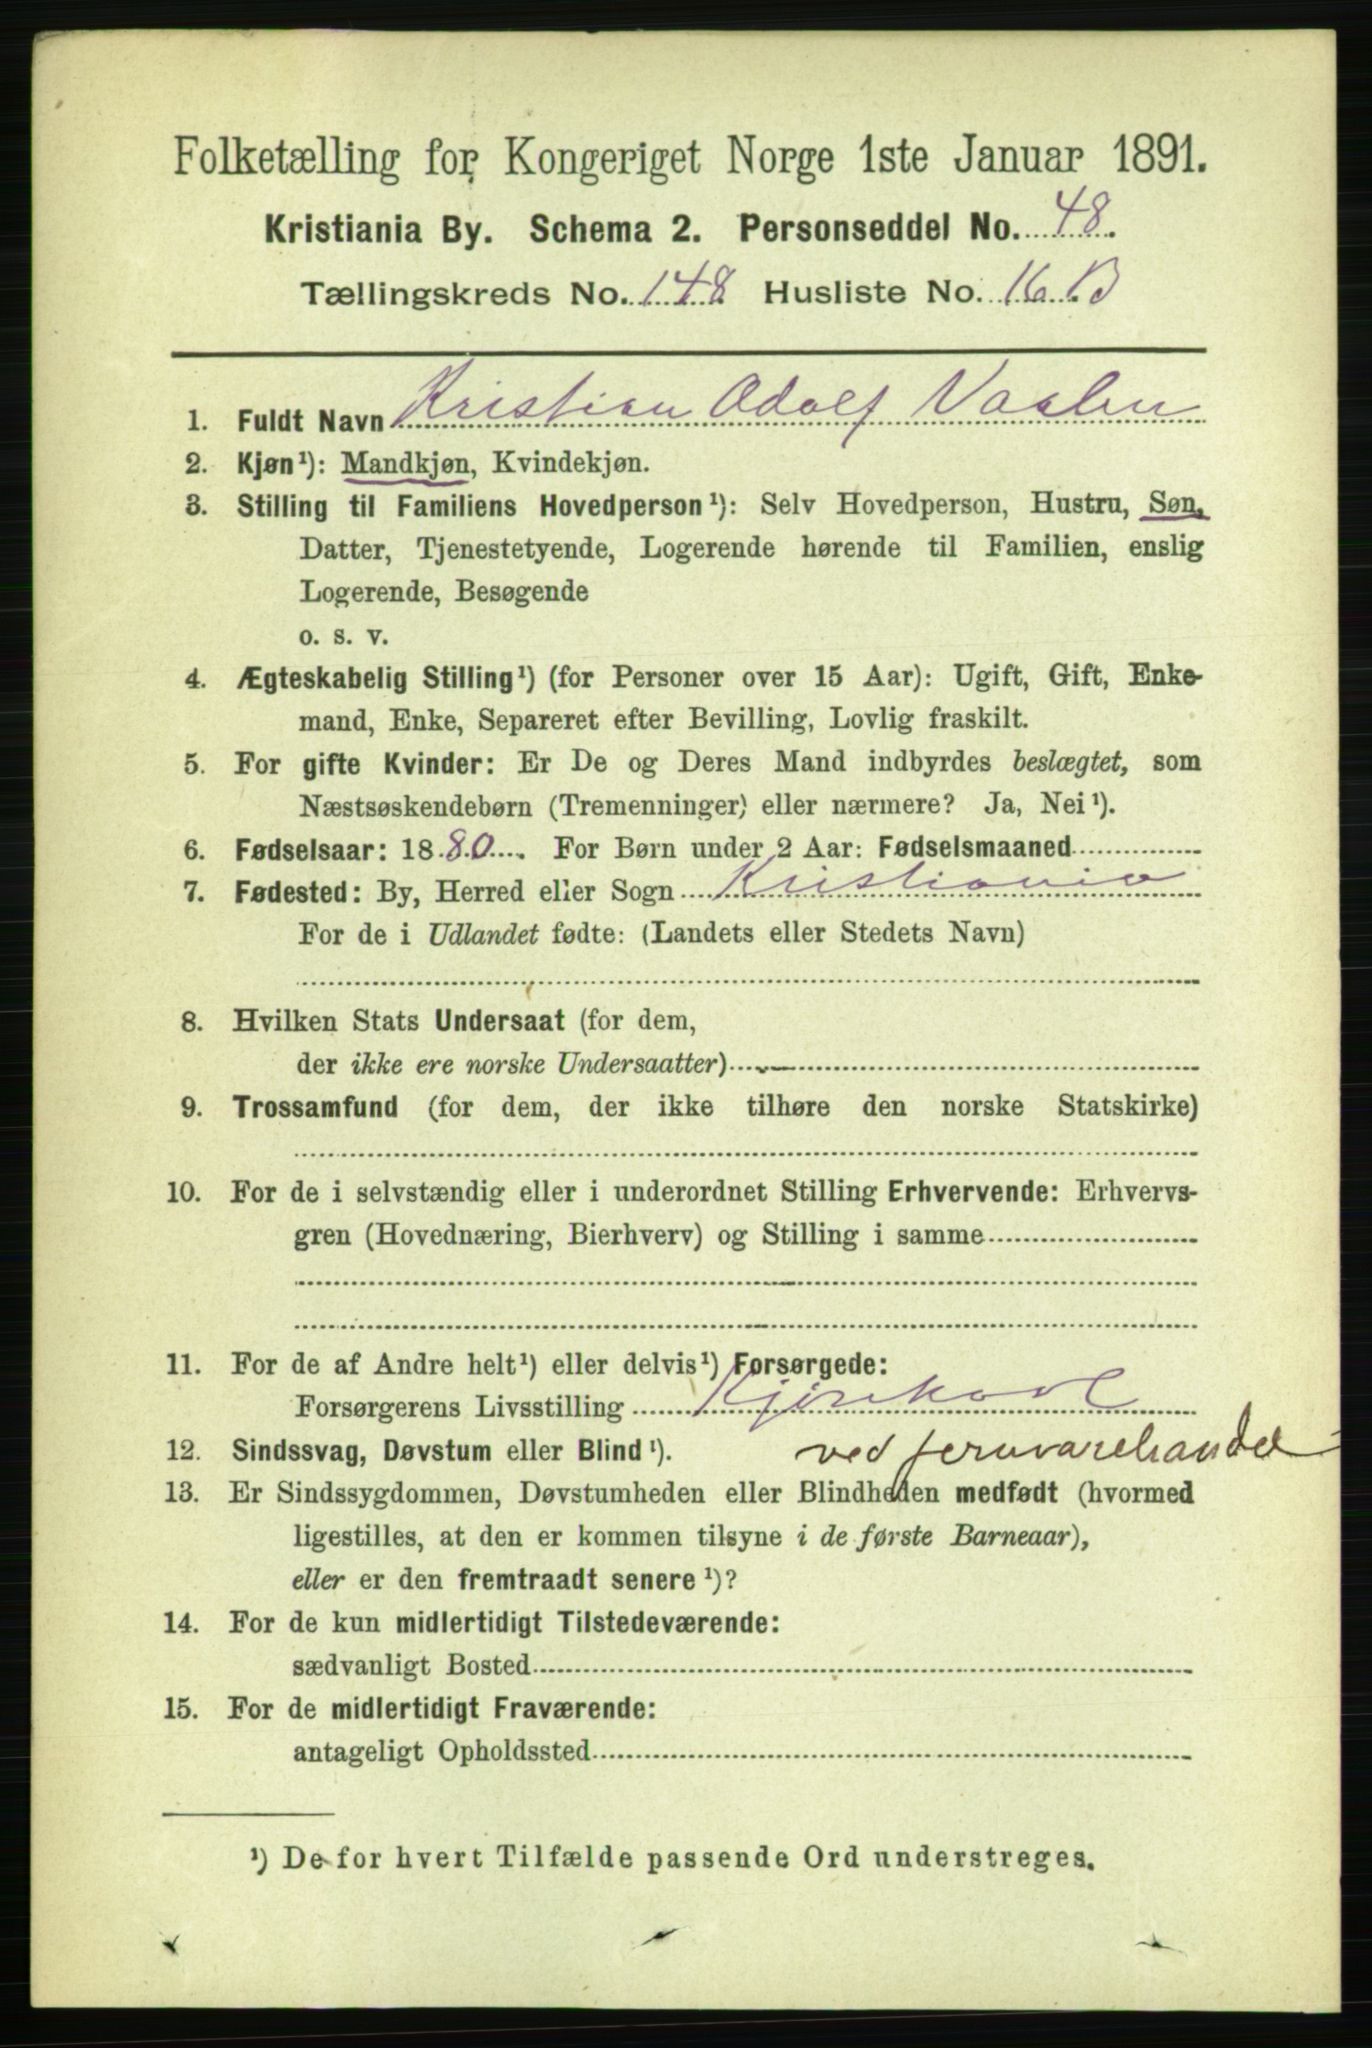 Folketælling for Kongeriget Norge 1ste Januar 1891.
Kristiania By. Schema 2. Personseddel No. 48.
Tællingskreds No. 148 Husliste No. 16 B
1. Fuldt Navn Kristian Adolf Vaalen
2. Kjøn¹): Mandkjøn, Kvindekjøn.
3. Stilling til Familiens Hovedperson¹): Selv Hovedperson, Hustru, Søn,
Datter, Tjenestetyende, Logerende hørende til Familien, enslig
Logerende, Besøgende
o. s. v.
4. Ægteskabelig Stilling¹) (for Personer over 15 Aar): Ugift, Gift, Enke-
mand, Enke, Separeret efter Bevilling, Lovlig fraskilt.
5. For gifte Kvinder: Er De og Deres Mand indbyrdes beslægtet, som
Næstsøskendebørn (Tremenninger) eller nærmere? Ja, Nei¹).
6. Fødselsaar: 1880. For Børn under 2 Aar: Fødselsmaaned
7. Fødested: By, Herred eller Sogn Kristiania
For de i Udlandet fødte: (Landets eller Stedets Navn)
8. Hvilken Stats Undersaat (for dem,
der ikke ere norske Undersaatter)
9. Trossamfund (for dem, der ikke tilhøre den norske Statskirke)
10. For de i selvstændig eller i underordnet Stilling Erhvervende: Erhvervs-
gren (Hovednæring, Bierhverv) og Stilling i samme
11. For de af Andre helt¹) eller delvis¹) Forsørgede:
Forsørgerens Livsstilling Kjørekarl
12. Sindssvag, Døvstum eller Blind¹). ved jernvarehandel
13. Er Sindssygdommen, Døvstumheden eller Blindheden medfødt (hvormed
ligestilles, at den er kommen tilsyne i de første Barneaar),
eller er den fremtraadt senere¹)?
14. For de kun midlertidigt Tilstedeværende:
sædvanligt Bosted
15. For de midlertidigt Fraværende:
antageligt Opholdssted
¹) De for hvert Tilfælde passende Ord understreges.